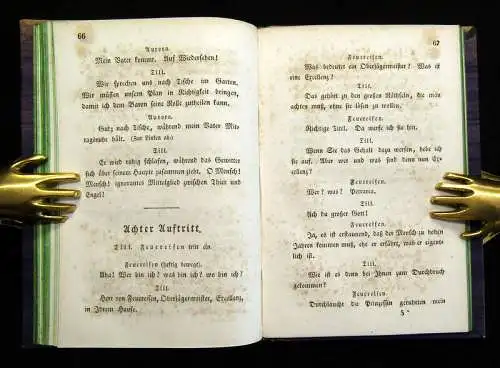 66
Aurora.
Mein Vater kommt. Auf Wiedersehen!
Till.
Wir sprechen uns nach Tische im Garten.
Wir müssen unsern Plan in Richtigkeit bringen,
damit ich dem Baron seine Rolle zutheilen kann.
Aurora.
Gut, nach Tische, während mein Vater Mit-
tagsruhe hält. (Zur Linken ab.)
Till.
Er wird ruhig schlafen, während das Gewitter
sich über seinem Haupte zusammen zieht. O Mensch!
Mensch! ignorantes Mittelglied zwischen Thier und
Engel!
Achter Auftritt.
Till. Feuereisen tritt ein.
Feuereisen (heftig bewegt).
Aha! Wer bin ich? was bin ich? wo bin ich?
Till.
Herr von Feuereisen, Oberjägermeister, Exzellenz,
in Ihrem Hause.
67
Feuereisen.
Was bedeutet ein Oberjägermeister? Was ist
eine Exzellenz?
Till.
Das gehört zu den großen Räthseln, die man
achten muß, ohne sie lösen zu wollen.
Feuereisen.
Nichtige Titel. Da werfe ich sie hin.
Till.
Wenn Sie den Gehalt dazu werfen, hebe ich
sie auf. Aber wer und was sind denn nun Ex-
zellenz?
Feuereisen.
Wer? was?
Till.
Ach du großer Gott!
Feuereisen.
Ja, es ist erstaunend, daß der Mensch zu hohen
Jahren kommen muß, ehe er erfährt, was er eigent-
lich ist.
Till.
Wie ist es denn bei Ihnen zum Durchbruch
gekommen?
Feuereisen.
Durchlaucht die Prinzessin geruheten mein
5 *